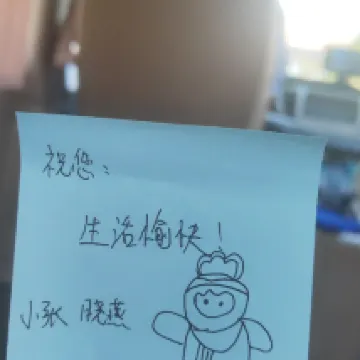 祝您：
生活愉快！
小张 晓燕